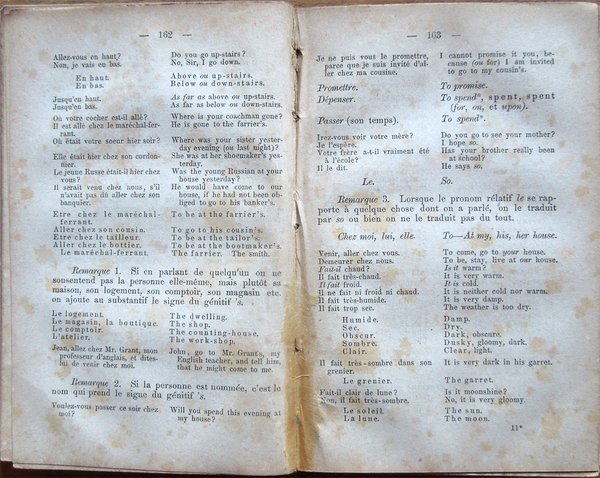 — 162 —
Allez-vous en haut? Do you go up-stairs?
Non, je vais en bas. No, Sir, I go down.
En haut. Above ou up-stairs.
En bas. Below ou down-stairs.
Jusqu'en haut. As far as above ou up-stairs.
Jusqu'en bas. As far as below ou down-stairs.
Où votre cocher est-il allé? Where is your coachman gone?
Il est allé chez le maréchal-fer- He is gone to the farrier's.
rant.
Où était votre soeur hier soir? Where was your sister yester-
day evening (ou last night)?
Elle était hier chez son cordon- She was at her shoemaker's yes-
nier. terday.
Le jeune Russe était-il hier chez Was the young Russian at your
vous? house yesterday?
Il serait venu chez nous, s'il He would have come to our
n'avait pas dû aller chez son house, if he had not been ob-
banquier. liged to go to his banker's.
Etre chez le maréchal- To be at the farrier's.
ferrant.
Aller chez son cousin. To go to his cousin's.
Etre chez le tailleur. To be at the tailor's.
Aller chez le bottier. To be at the bootmaker's.
Le maréchal-ferrant. The farrier. The smith.
Remarque 1. Si en parlant de quelqu'un on ne
sousentend pas la personne elle-même, mais plutôt sa
maison, son logement, son comptoir, son magasin etc.
on ajoute au substantif le signe du génitif 's.
Le logement. The dwelling.
Le magasin, la boutique. The shop.
Le comptoir. The counting-house.
L'atelier. The work-shop.
Jean, allez chez Mr. Grant, mon John, go to Mr. Grant's, my
professeur d'anglais, et dites- English teacher, and tell him,
lui de venir chez moi. that he might come to me.
Remarque 2. Si la personne est nommée, c'est le
nom qui prend le signe du génitif 's.
Voulez-vous passer ce soir chez Will you spend this evening at
moi? my house?
— 163 —
Je ne puis vous le promettre, I cannot promise it you, be-
parce que je suis invité d'al- cause (ou for) I am invited
ler chez ma cousine. to go to my cousin's.
Promettre. To promise.
Dépenser. To spend*, spent, spent
(for, on, et upon).
Passer (son temps). To spend*.
Irez-vous voir votre mère? Do you go to see your mother?
Je l'espère. I hope so.
Votre frère a-t-il vraiment été Has your brother really been
à l'école? at school?
Il le dit. He says so.
Le. So.
Remarque 3. Lorsque le pronom rélatif le se rap-
porte à quelque chose dont on a parlé, on le traduit
par so ou bien on ne le traduit pas du tout.
Chez moi, lui, elle. To—At my, his, her house.
Venir, aller chez vous. To come, go to your house.
Demeurer chez nous. To be, stay, live at our house.
Fait-il chaud? Is it warm?
Il fait très-chaud. It is very warm.
Il fait froid. It is cold.
Il ne fait ni froid ni chaud. It is neither cold nor warm.
Il fait très-humide. It is very damp.
Il fait trop sec. The weather is too dry.
Humide. Damp.
Sec. Dry.
Obscur. Dark, obscure.
Sombre. Dusky, gloomy, dark.
Clair. Clear, light.
Il fait très-sombre dans son It is very dark in his garret.
grenier.
Le grenier. The garret.
Fait-il clair de lune? Is it moonshine?
Non, il fait très-sombre. No, it is very gloomy.
Le soleil. The sun.
La lune. The moon.
11*